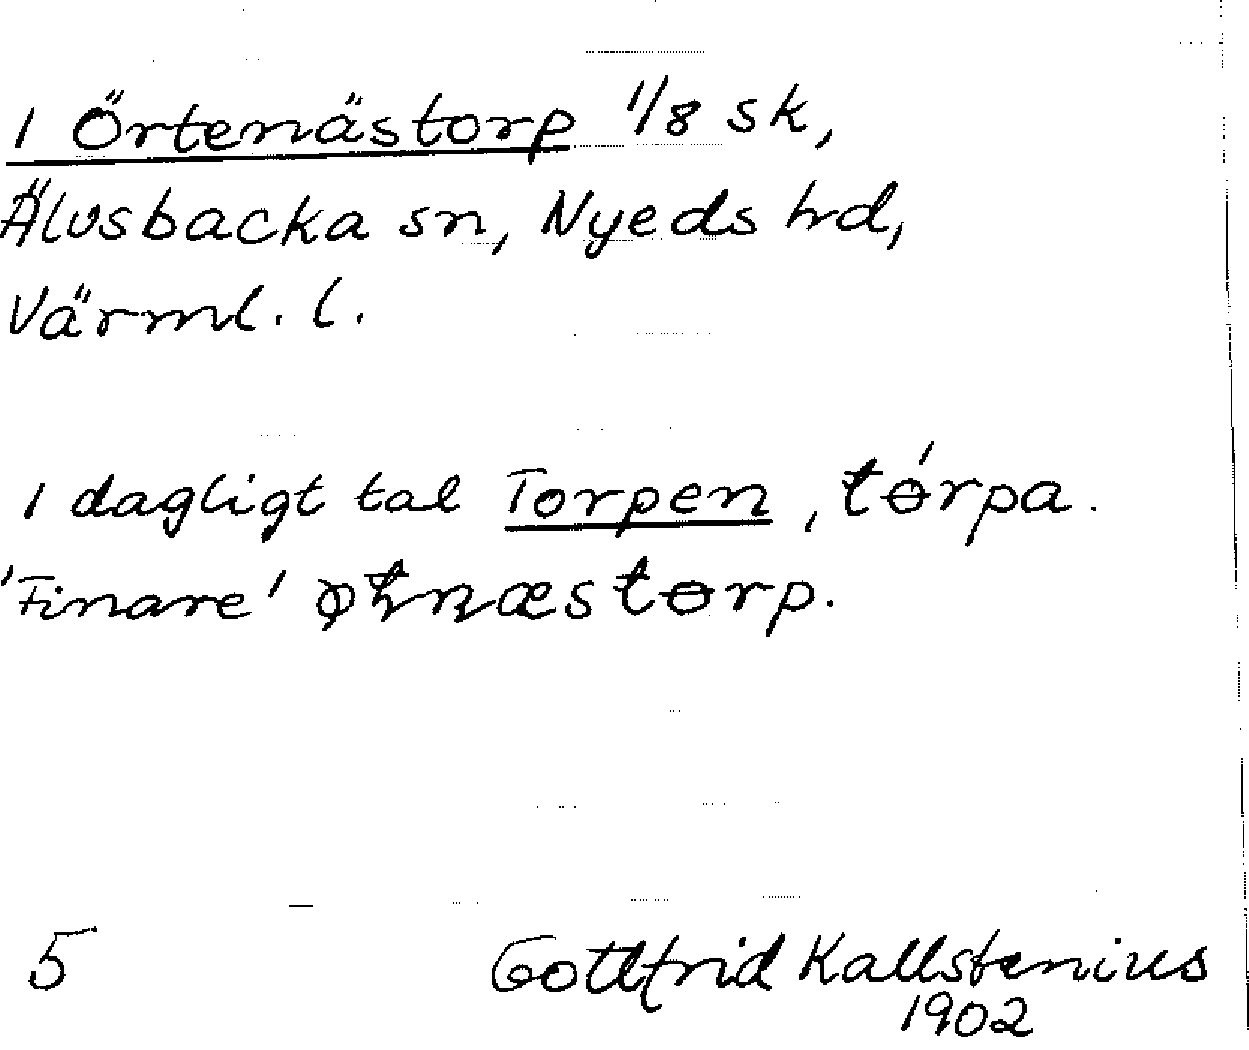 1 Örtenästorp 1/8 sk,
Älvsbacka sn, Nyeds hd,
Värml. l.
I dagligt tal Torpen, tɵ́rpa.
'Finare' torp.
5 Gottfrid Kallstenius
1902